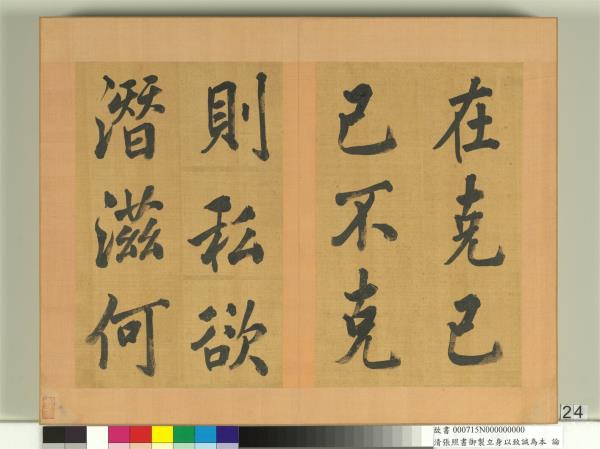 在克己
己不克
則私欲
潛滋何
24
故書 000715N000000000
清張照書御製立身以致誠為本 論